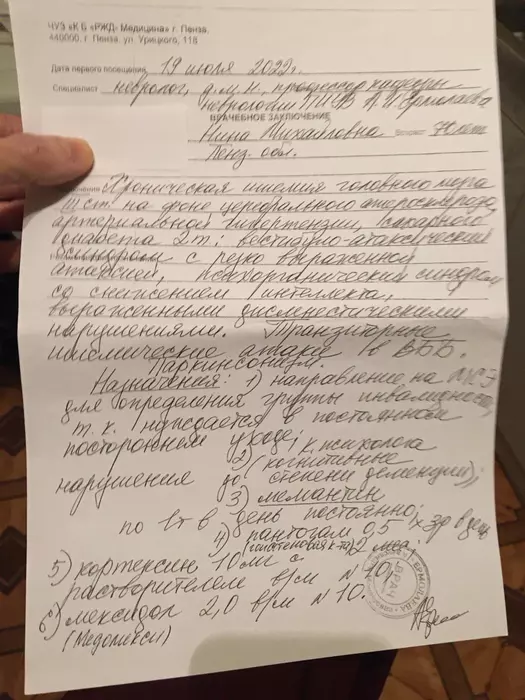 ЧУЗ «К Б «РЖД- Медицина» г. Пенза.
440000. г. Пенза. ул. Урицкого, 118
Дата первого посещения 19 июля 2022г.
Специалист невролог, д.м.н, профессор кафедры
неврологии ПИУВ А.И. Ермолаева
ВРАЧЕБНОЕ ЗАКЛЮЧЕНИЕ
Нина Михайловна 70 лет
Пенз. обл.
Хроническая ишемия головного мозга
III ст на фоне церебрального атеросклероза,
артериальной гипертензии, сахарного
диабета 2 т; вестибуло-атаксический
синдром с резко выраженной
атаксией, психорганический синдром
со снижением интеллекта,
выраженными дисмнестическими
нарушениями. Транзиторные
ишемические атаки в ВББ.
Паркинсонизм.
Назначения: 1) направление на МСЭ
для определения группы инвалидности,
т.к. нуждается в постоянном
постороннем уходе;
2) к психолога
(когнитивные
нарушения до степени деменции);
3) мемантин
по 1т в день постоянно;
4) пантогам 0,5 х 3р в день
(гопантеновая к-та) 2 мес;
5) кортексин 10мг с
растворителем в/м N 10;
6) мексидол 2,0 в/м N 10.
(Медомекси)
ВРАЧ
ЕРМОЛАЕВА